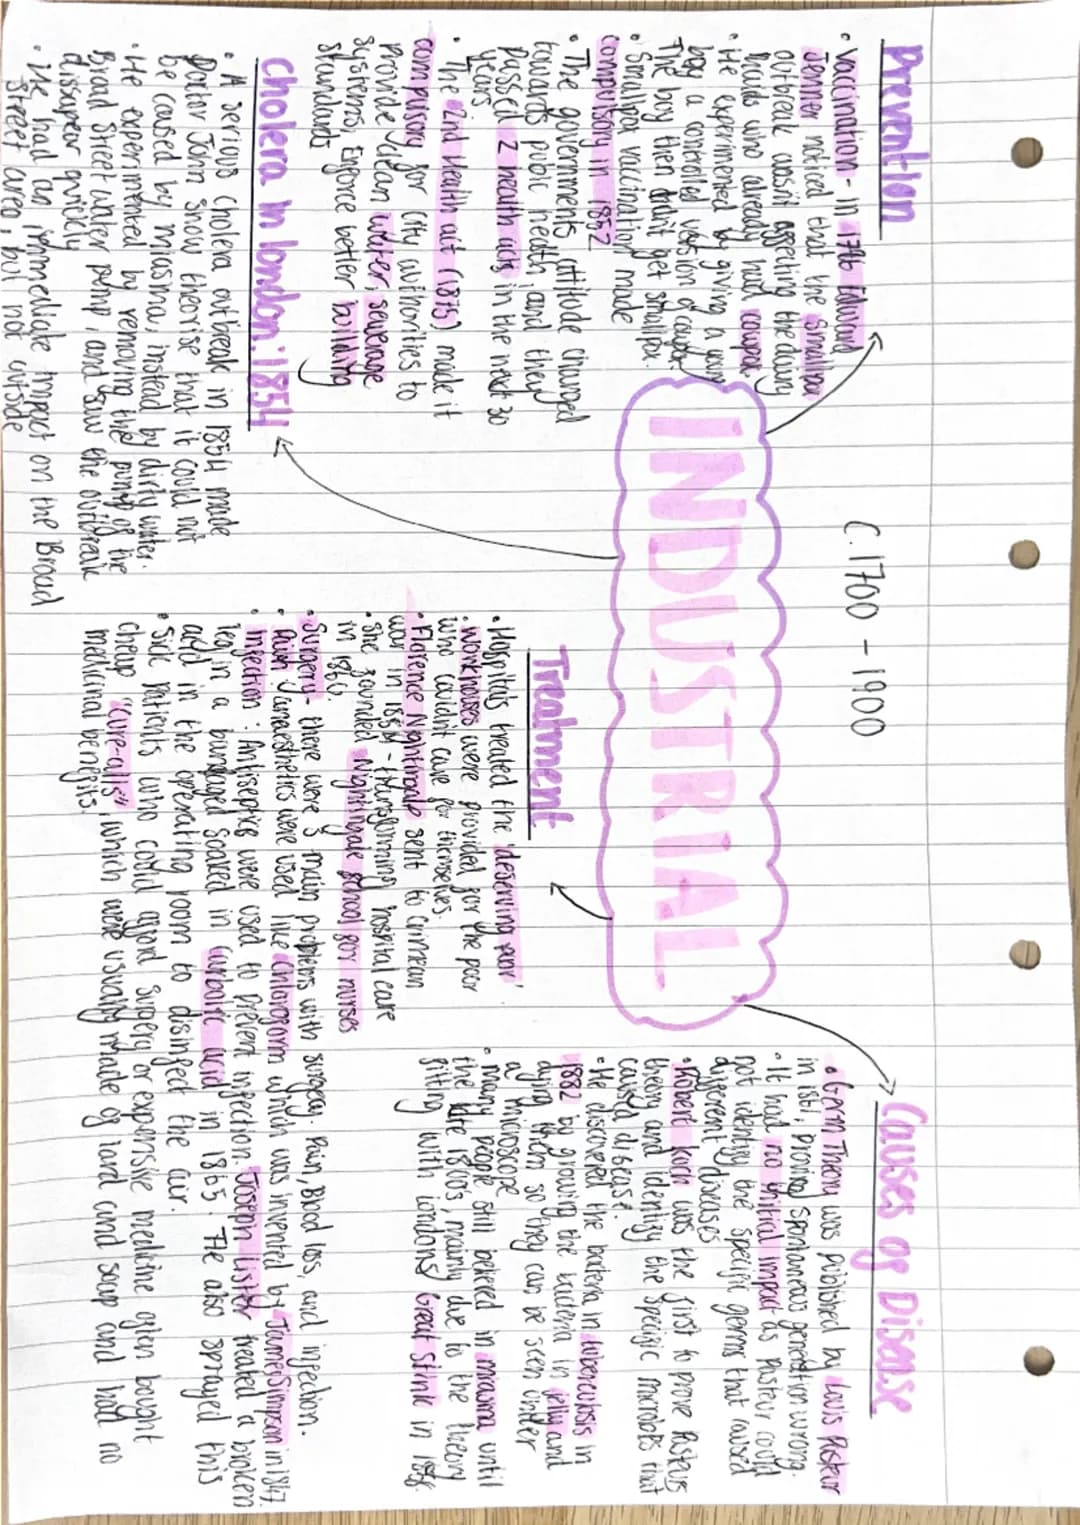 C.1700 - 1900
INDUSTRIAL
Prevention
• Vaccination - in 1796 Edward
Jenner noticed that the smallpox
outbreak wasnt affecting the dairy
maids who already had cowpox.
• He experimented by giving a young
boy a controlled version of cowpox.
The boy then didnt get smallpox.
• Smallpox vaccination made
compulsory in 1852
• The governments attitude changed
towards public health, and they
passed 2 health acts in the next 30
years
• The 2nd Health act (1875) made it
compulsory for city authorities to
provide clean water, sewerage
systems, enforce better building
standards
Cholera in london: 1854
• A serious cholera outbreak in 1854 made
Doctor John Snow theorise that it could not
be caused by miasma, instead by dirty water.
• He experimented by removing the pump of the
Broad Street water pump, and saw the outbreak
dissapear quickly
• He had an immediate impact on the Broad
Street area, but not outside
Treatment
• Hospitals treated the 'deserving poor'
• Workhouses were provided for the poor
who couldnt care for themselves.
• Florence Nightingale sent to crimean
war in 1854 - transforming hospital care
• She founded Nightingale school for nurses
in 1860.
• Surgery - there were 3 main problems with surgery. Pain, Blood loss, and infection.
• Pain: Anaesthetics were used like chloroform which was invented by James Simpson in 1847.
• Infection: Antiseptics were used to prevent infection. Joseph Lister treated a broken
leg in a bandaged soaked in carbolic acid in 1865. He also sprayed this
acid in the operating room to disinfect the air.
• Sick patients who could afford surgery or expensive medicine often bought
cheap "cure-alls", which were usually made of lard and soap and had no
medicinal benefits
Causes of Disease
• Germ Theory was published by Louis Pasteur
in 1861, proving spontaneous generation wrong.
• It had no initical impact as Pasteur could
not identify the specific germs that caused
different diseases
• Robert Koch was the first to prove Pasteurs
theory and identify the specific microbes that
caused disease.
• He discovered the bateria in tuberculosis in
1882 by growing the bacteria in jelly and
dying them so they can be seen under
a microscope
• Many people still belived in miasma until
the late 1800's, mainly due to the theory
fitting with londons Great Stink in 1858.